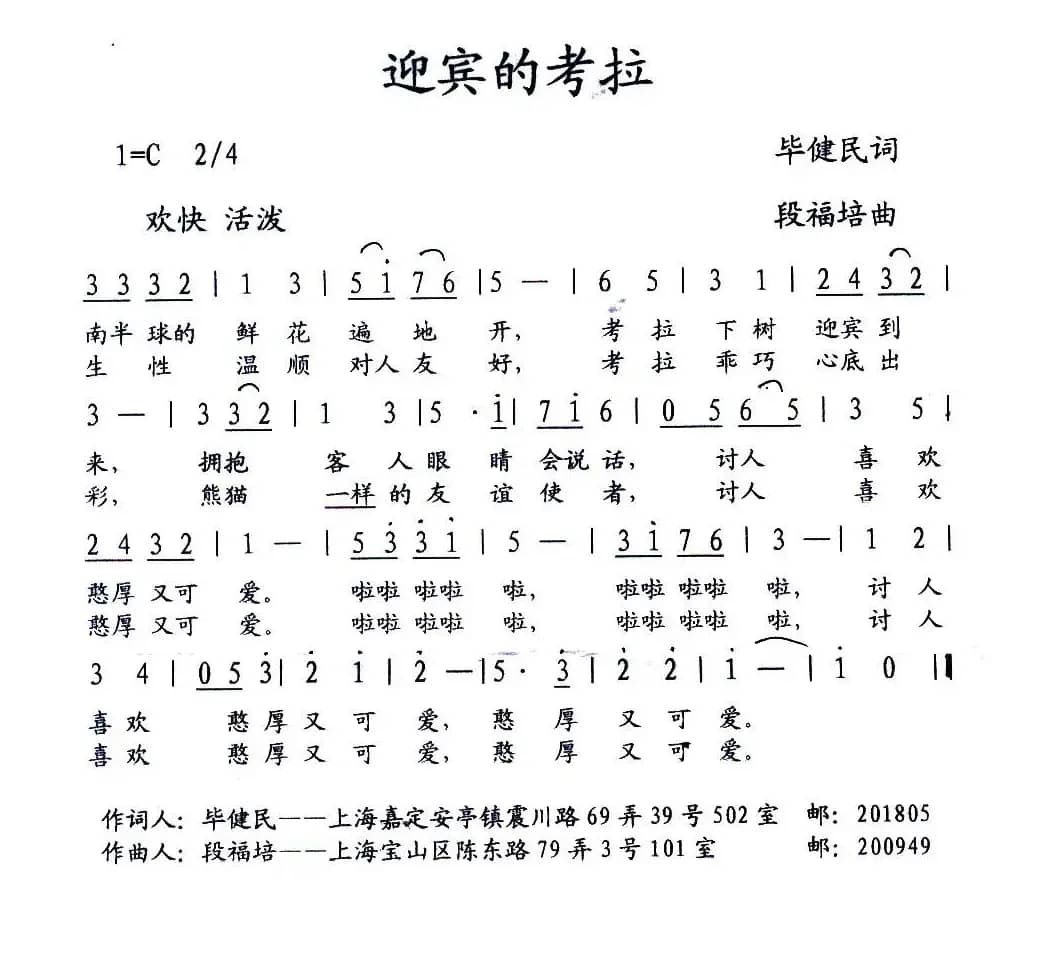 迎宾的考拉
1=C 2/4 毕健民词
欢快 活泼 段福培曲
3 3 3 2 | 1 3 | 5 i 7 6 | 5 — | 6 5 | 3 1 | 2 4 3 2 |
南半 球的 鲜 花 遍 地 开, 考 拉 下 树 迎宾 到
生 性 温 顺 对人 友 好, 考 拉 乖 巧 心底 出
3 — | 3 3 2 | 1 3 | 5 · i | 7 i 6 | 0 5 6 5 | 3 5 |
来, 拥抱 客 人 眼 睛 会说 话, 讨人 喜 欢
彩, 熊猫 一样 的 友 谊 使 者, 讨人 喜 欢
2 4 3 2 | 1 — | 5 3̇ 3̇ i | 5 — | 3 i 7 6 | 3 — | 1 2 |
憨厚 又可 爱。 啦啦 啦啦 啦, 啦啦 啦啦 啦, 讨 人
憨厚 又可 爱。 啦啦 啦啦 啦, 啦啦 啦啦 啦, 讨 人
3 4 | 0 5 3̇ | 2̇ i | 2̇ — | 5 · 3̇ | 2̇ 2̇ | i — | i 0 ‖
喜 欢 憨 厚 又 可 爱, 憨 厚 又 可 爱。
喜 欢 憨 厚 又 可 爱, 憨 厚 又 可 爱。
作词人: 毕健民——上海嘉定安亭镇震川路 69 弄 39 号 502 室 邮: 201805
作曲人: 段福培——上海宝山区陈东路 79 弄 3 号 101 室 邮: 200949